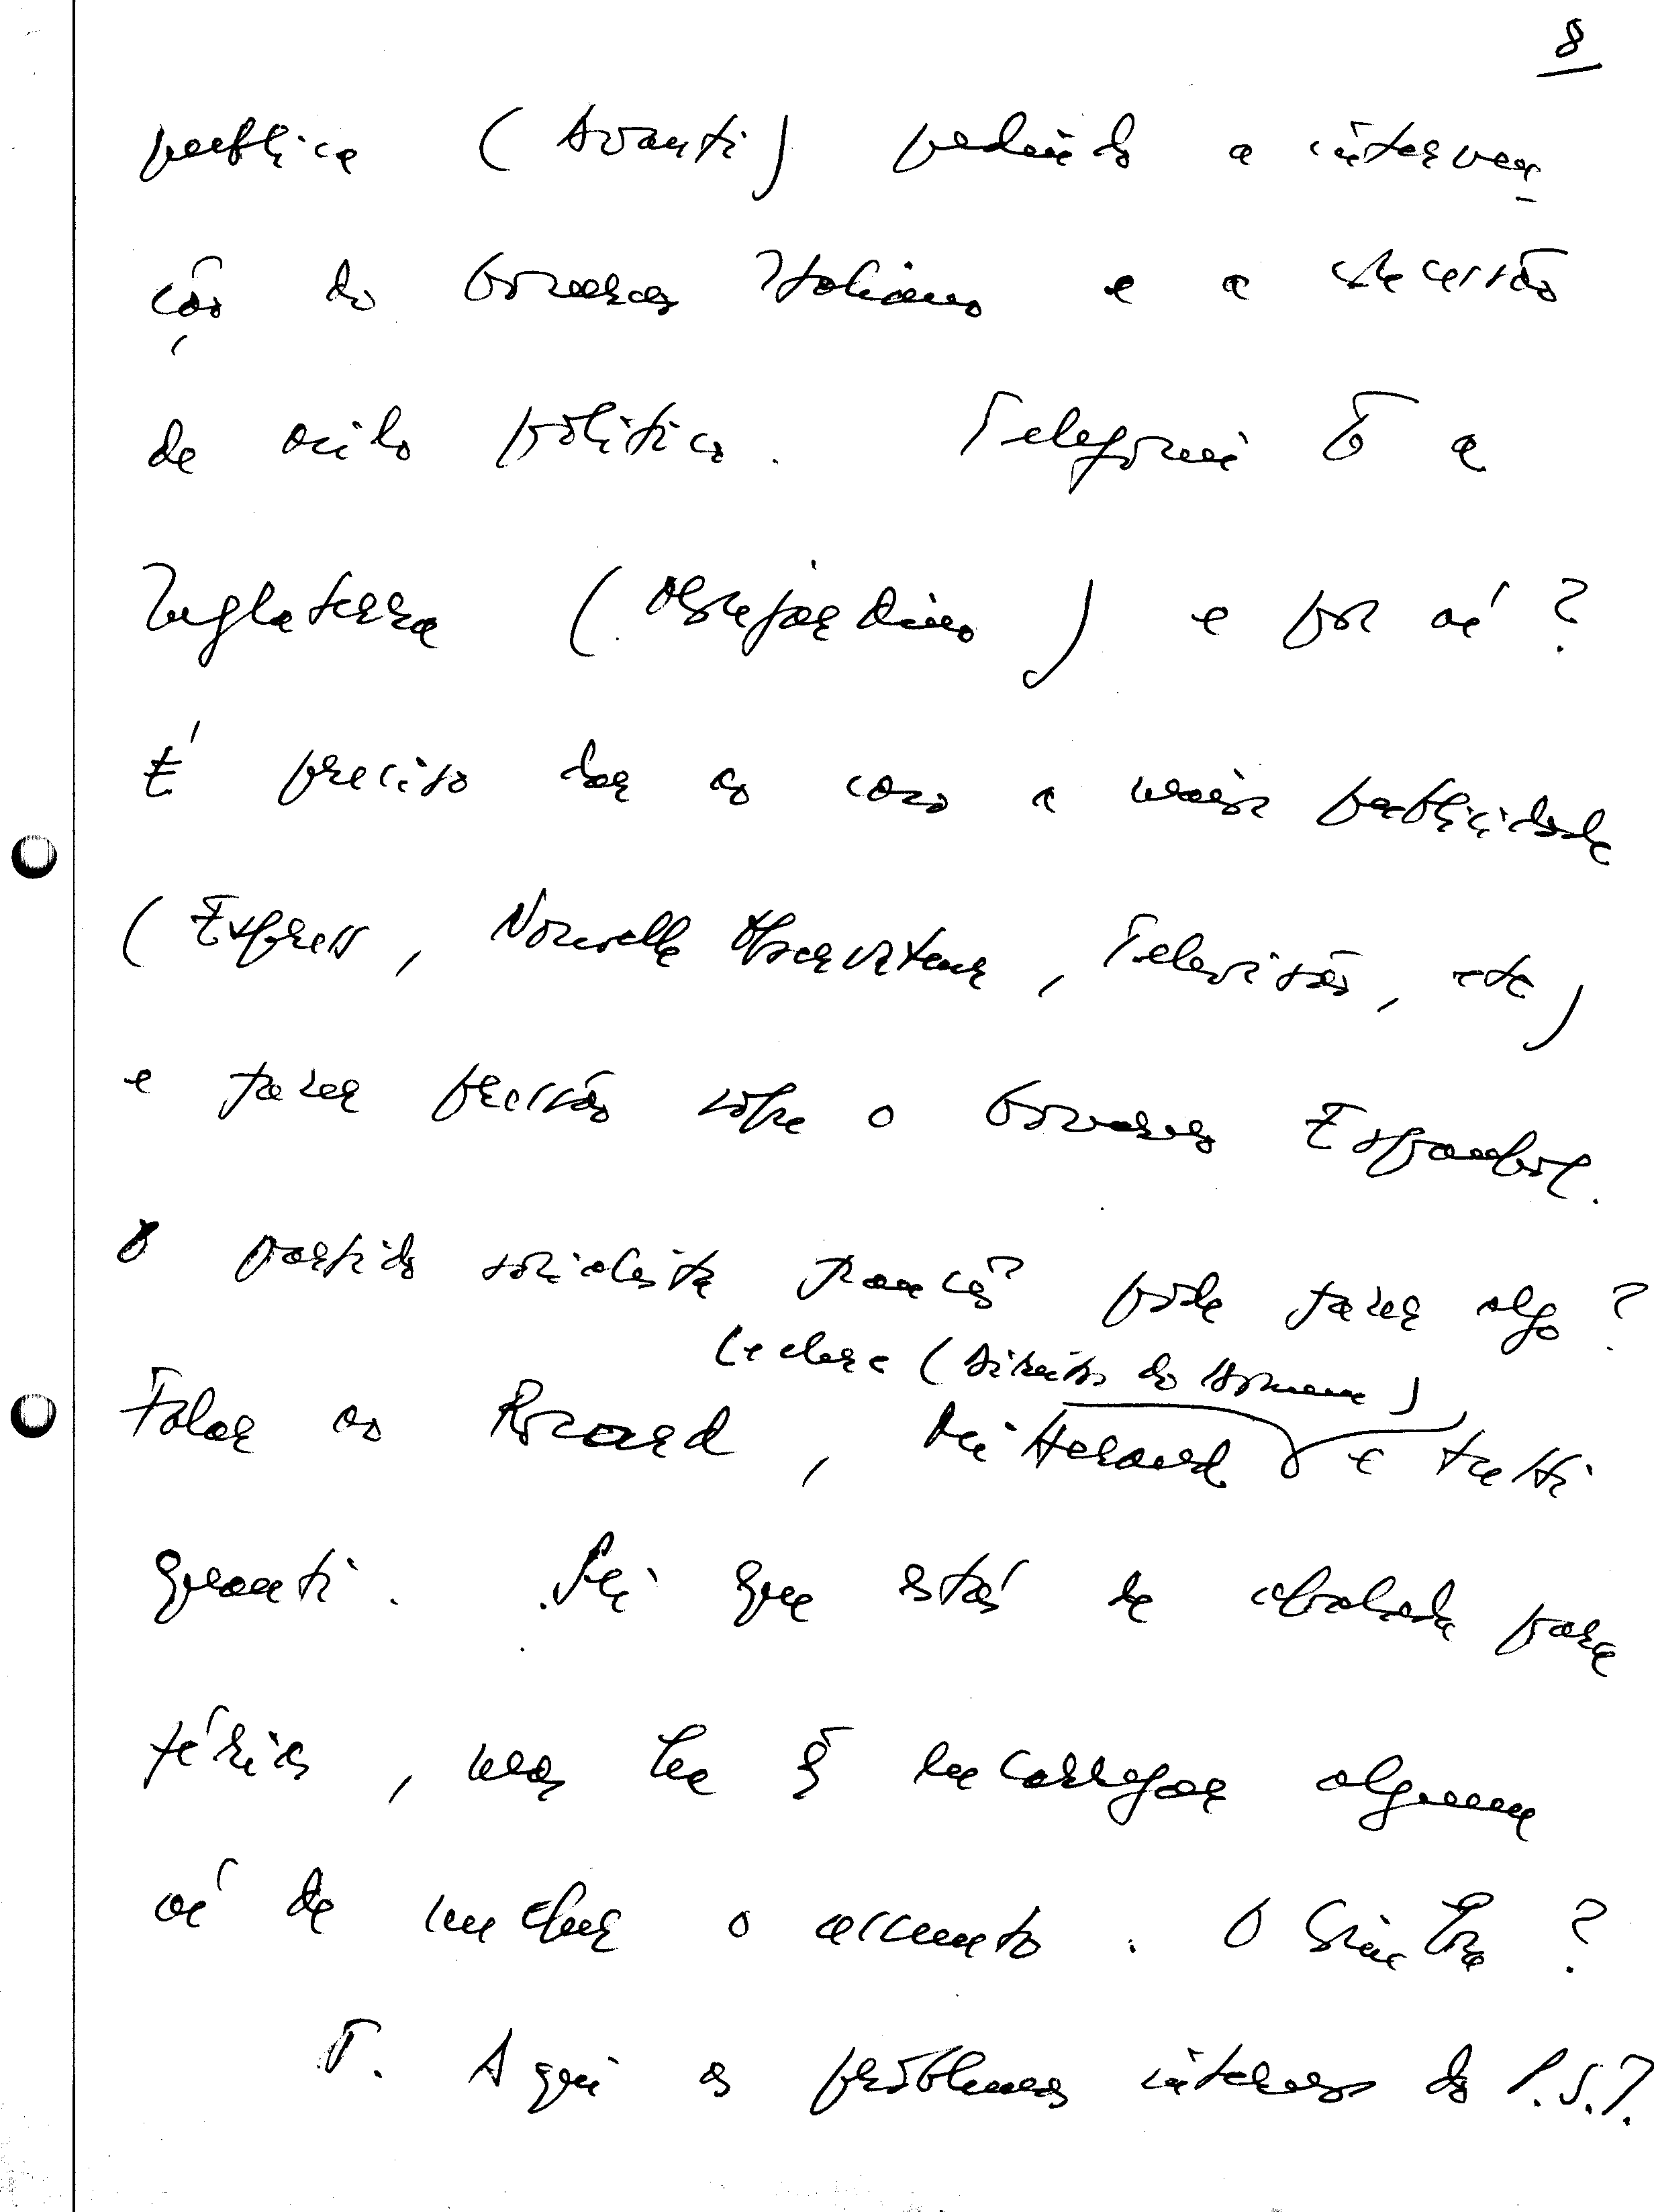 8
publica (Avanti) pedindo a interven-
ção do Governo Italiano e a concessão
de asilo político. Telefonei p a
Inglaterra ( ) e por aí?
É preciso dar ao caso a maior publicidade
(Express, Nouvelle Observateur, Televisão, etc)
e fazer pressão sobre o Governo Espanhol.
O partido socialista francês pode fazer algo?
(Direitos do Homem)
Falar ao Rocard, Mitterand e tutti
quanti. Sei que estás de abalada para
férias, mas tens q encarregar alguem
aí de mecher o assunto. O Sintra?
T. Aqui os problemas internos do P.S.P.